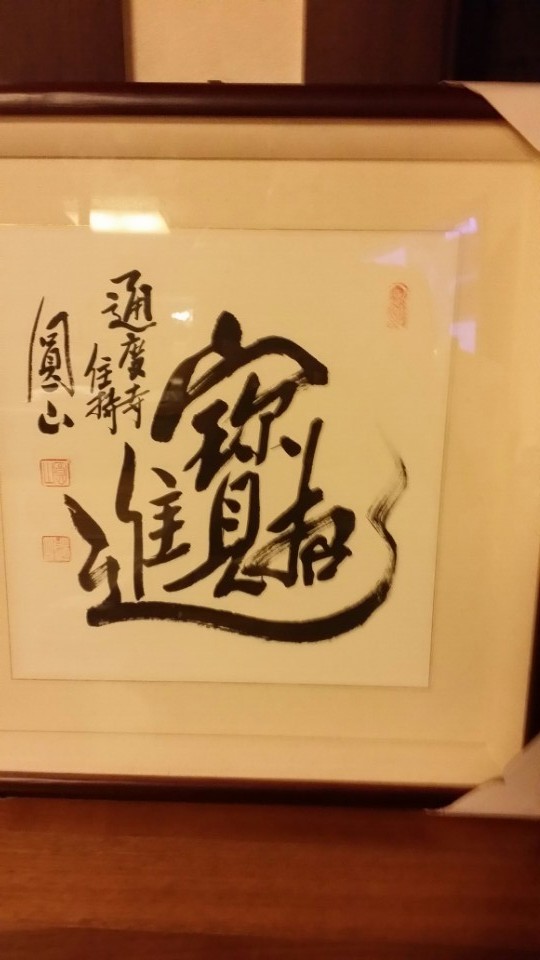 招財進寶
通度寺
住持
圓山